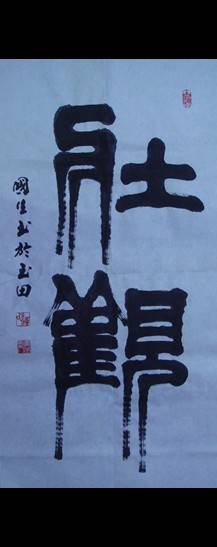 壯觀
國生书於玉田